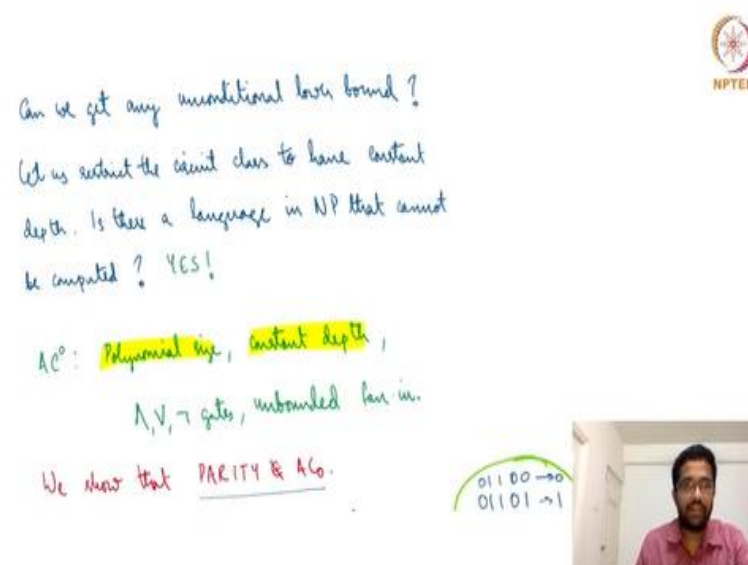 Can we get any unconditional lower bound?
Let us restrict the circuit class to have constant
depth. Is there a language in NP that cannot
be computed? YES!
AC⁰: Polynomial size, constant depth,
∧, ∨, ¬ gates, unbounded fan-in.
We show that PARITY ∉ AC₀.
01100 → 0
01101 → 1
NPTEL